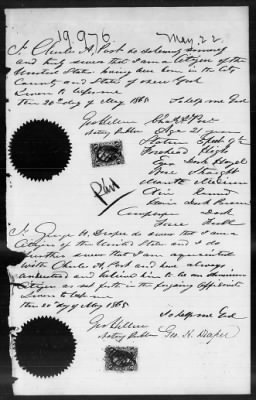 19,976
May, 22
I Charles A, Post do solemnly
and truly swear that I am a Citizen of the
United States being born in the City
County and State of New York
Sworn to before me
this 20 day of May 1865 So help me God
Geo Chas A Post
Notary Public Age 21 years
Stature 5 feet
Forehead High
Eyes Dark Hazel
Nose Straight
Mouth Medium
Chin Round
Hair Dark Brown
Complexion Dark
Face
I, George H, Draper do swear that I am a
Citizen of the United States and I do
further swear that I am acquainted
with Charles A, Post and have always
understood and believe him to be an American
Citizen as set forth in the forgoing Affidavit
Sworn to before me
this 20 day of May 1865 So help me God
Geo
Notary Public Geo. H. Draper